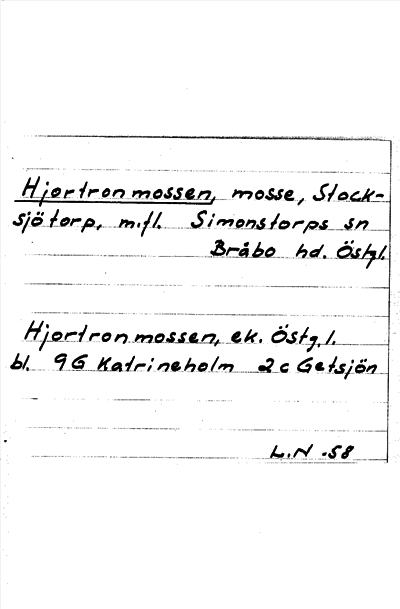 Hjortronmossen, mosse, Stock-
sjötorp, m.fl. Simonstorps sn
Bråbo hd. Östgl.
Hjortronmossen, ek. Östg.l.
bl. 9G Katrineholm 2c Getsjön
L.N -58